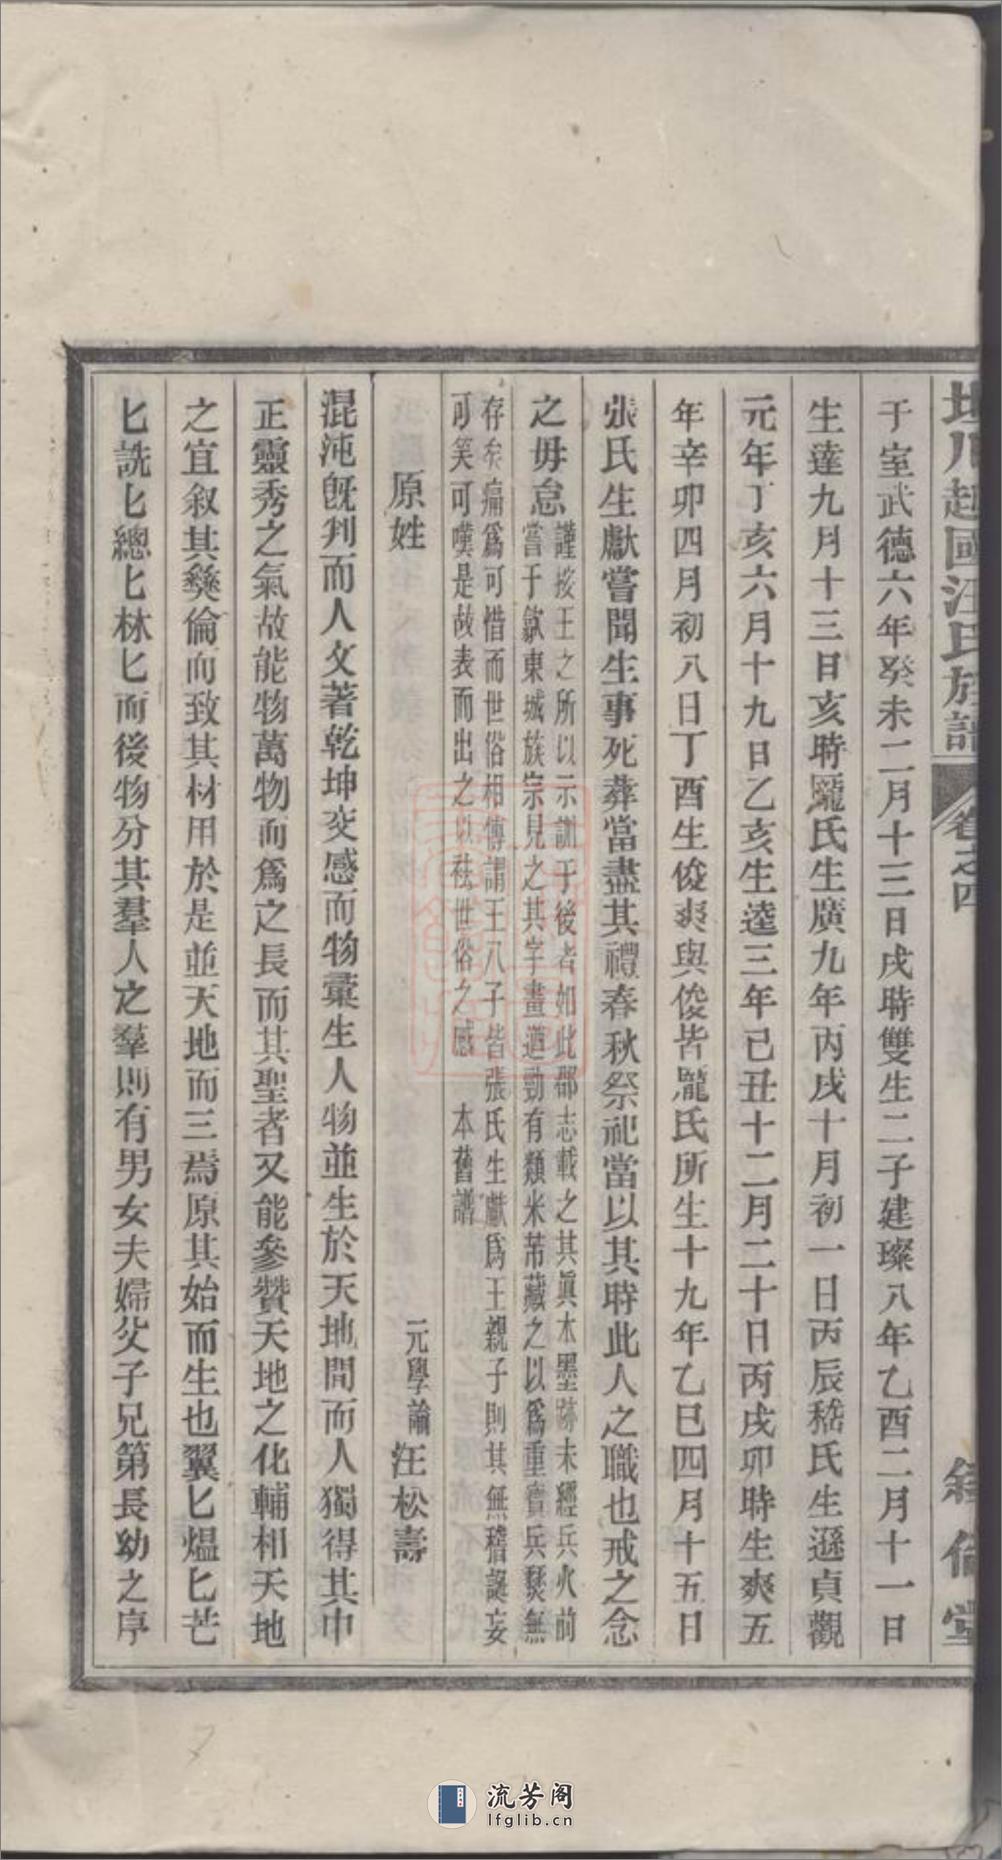 坦川越國汪氏族譜 卷之四 敘倫堂
于室武德六年癸未二月十三日戌時雙生二子建璨八年乙酉二月十一日
生達九月十三日亥時龐氏生廣九年丙戌十月初一日丙辰嵇氏生遜貞觀
元年丁亥六月十九日乙亥生逵三年已丑十二月二十日丙戌卯時生爽五
年辛卯四月初八日丁酉生俊爽與俊皆龐氏所生十九年乙巳四月十五日
張氏生獻嘗聞生事死葬當盡其禮春秋祭祀當以其時此人之職也戒之念
之毋怠
謹按王之所以示訓于後者如此郡志載之其眞本墨跡未經兵火前
嘗于歙東城族宗見之其字畫遒勁有類米芾藏之以爲重寶兵燹無
存矣痛爲可惜而世俗相傳謂王八子皆張氏生獻爲王親子則其無稽誕妄
可笑可嘆是故表而出之以祛世俗之惑 本舊譜
原姓 元學諭汪松壽
混沌旣判而人文著乾坤交感而物彙生人物並生於天地間而人獨得其中
正靈秀之氣故能物萬物而爲之長而其聖者又能參贊天地之化輔相天地
之宜叙其彜倫而致其材用於是並天地而三焉原其始而生也翼匕熅匕芒
匕詵匕總匕林匕而後物分其羣人之羣則有男女夫婦父子兄第長幼之序
流芳阁
lfglib.cn